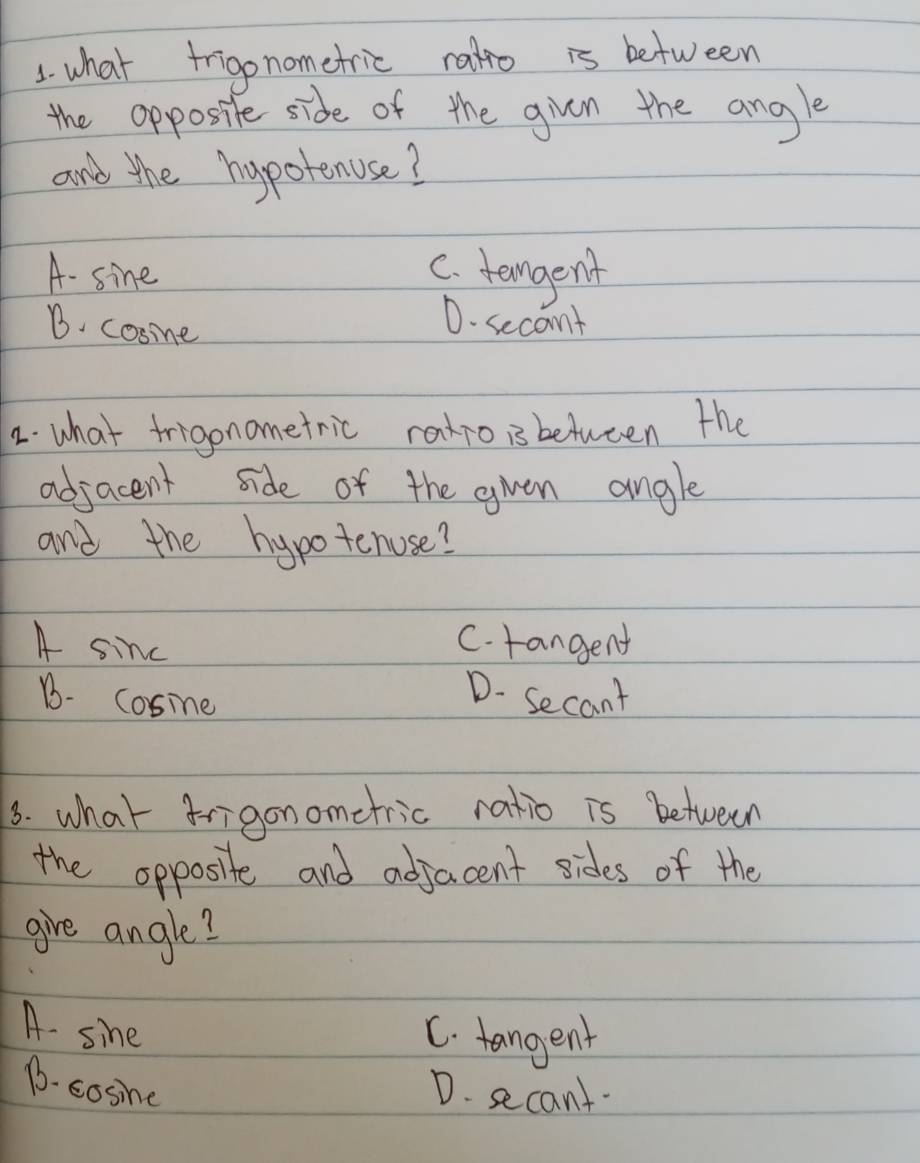 1. What trigonometric ratio is between
the opposite side of the given the angle
and the hypotenuse?
A- sine
C. tangent
B. cosine
D. secant
2. What trigonometric ratio is between the
adjacent side of the given angle
and the hypotenuse?
A sine
C- tangent
B- cosine
D- secant
3. What trigonometric ratio is between
the opposite and adjacent sides of the
give angle?
A- sine
C. tangent
B- cosine
D- secant.